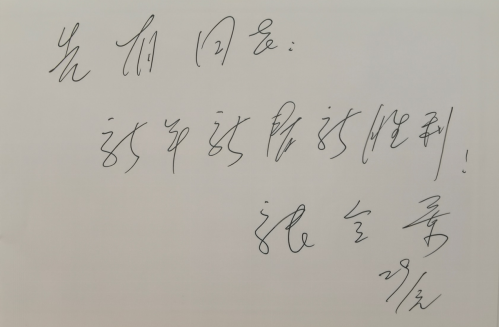 同志：
新年新新胜利！
张全景
29/元